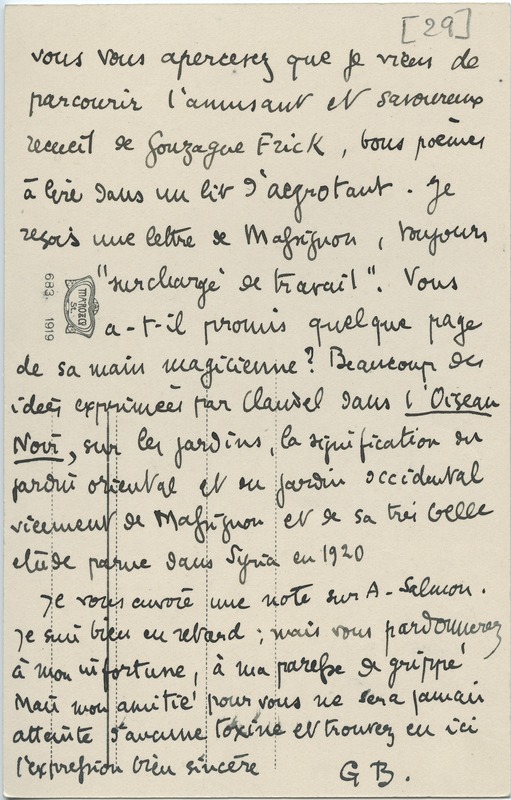 [29]
vous vous apercevez que je viens de
parcourir l'amusant et savoureux
recueil de Gonzague Frick, bons poèmes
à lire dans un lit d'aegrotant. Je
reçois une lettre de Massignon, toujours
"surchargé de travail". Vous
683. 1919
a-t-il promis quelque page
de sa main magicienne? Beaucoup des
idées exprimées par Claudel dans l'Oiseau
Noir, sur les jardins, la signification du
jardin oriental et du jardin occidental
viennent de Massignon et de sa très belle
étude parue dans Syria en 1920
Je vous envoie une note sur A-Salmon.
Je suis bien en retard; mais vous pardonnerez
à mon infortune, à ma paresse de grippé
Mais mon amitié pour vous ne sera jamais
atteinte d'aucune toxine et trouvez en ici
l'expression bien sincère
G B.